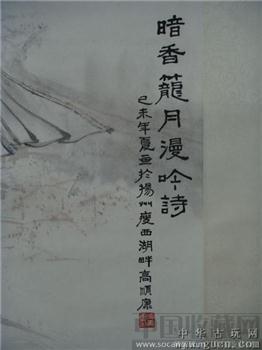 暗香籠月漫吟詩
己未年夏畫於揚州瘦西湖畔高順康
中国收藏网
中华古玩网